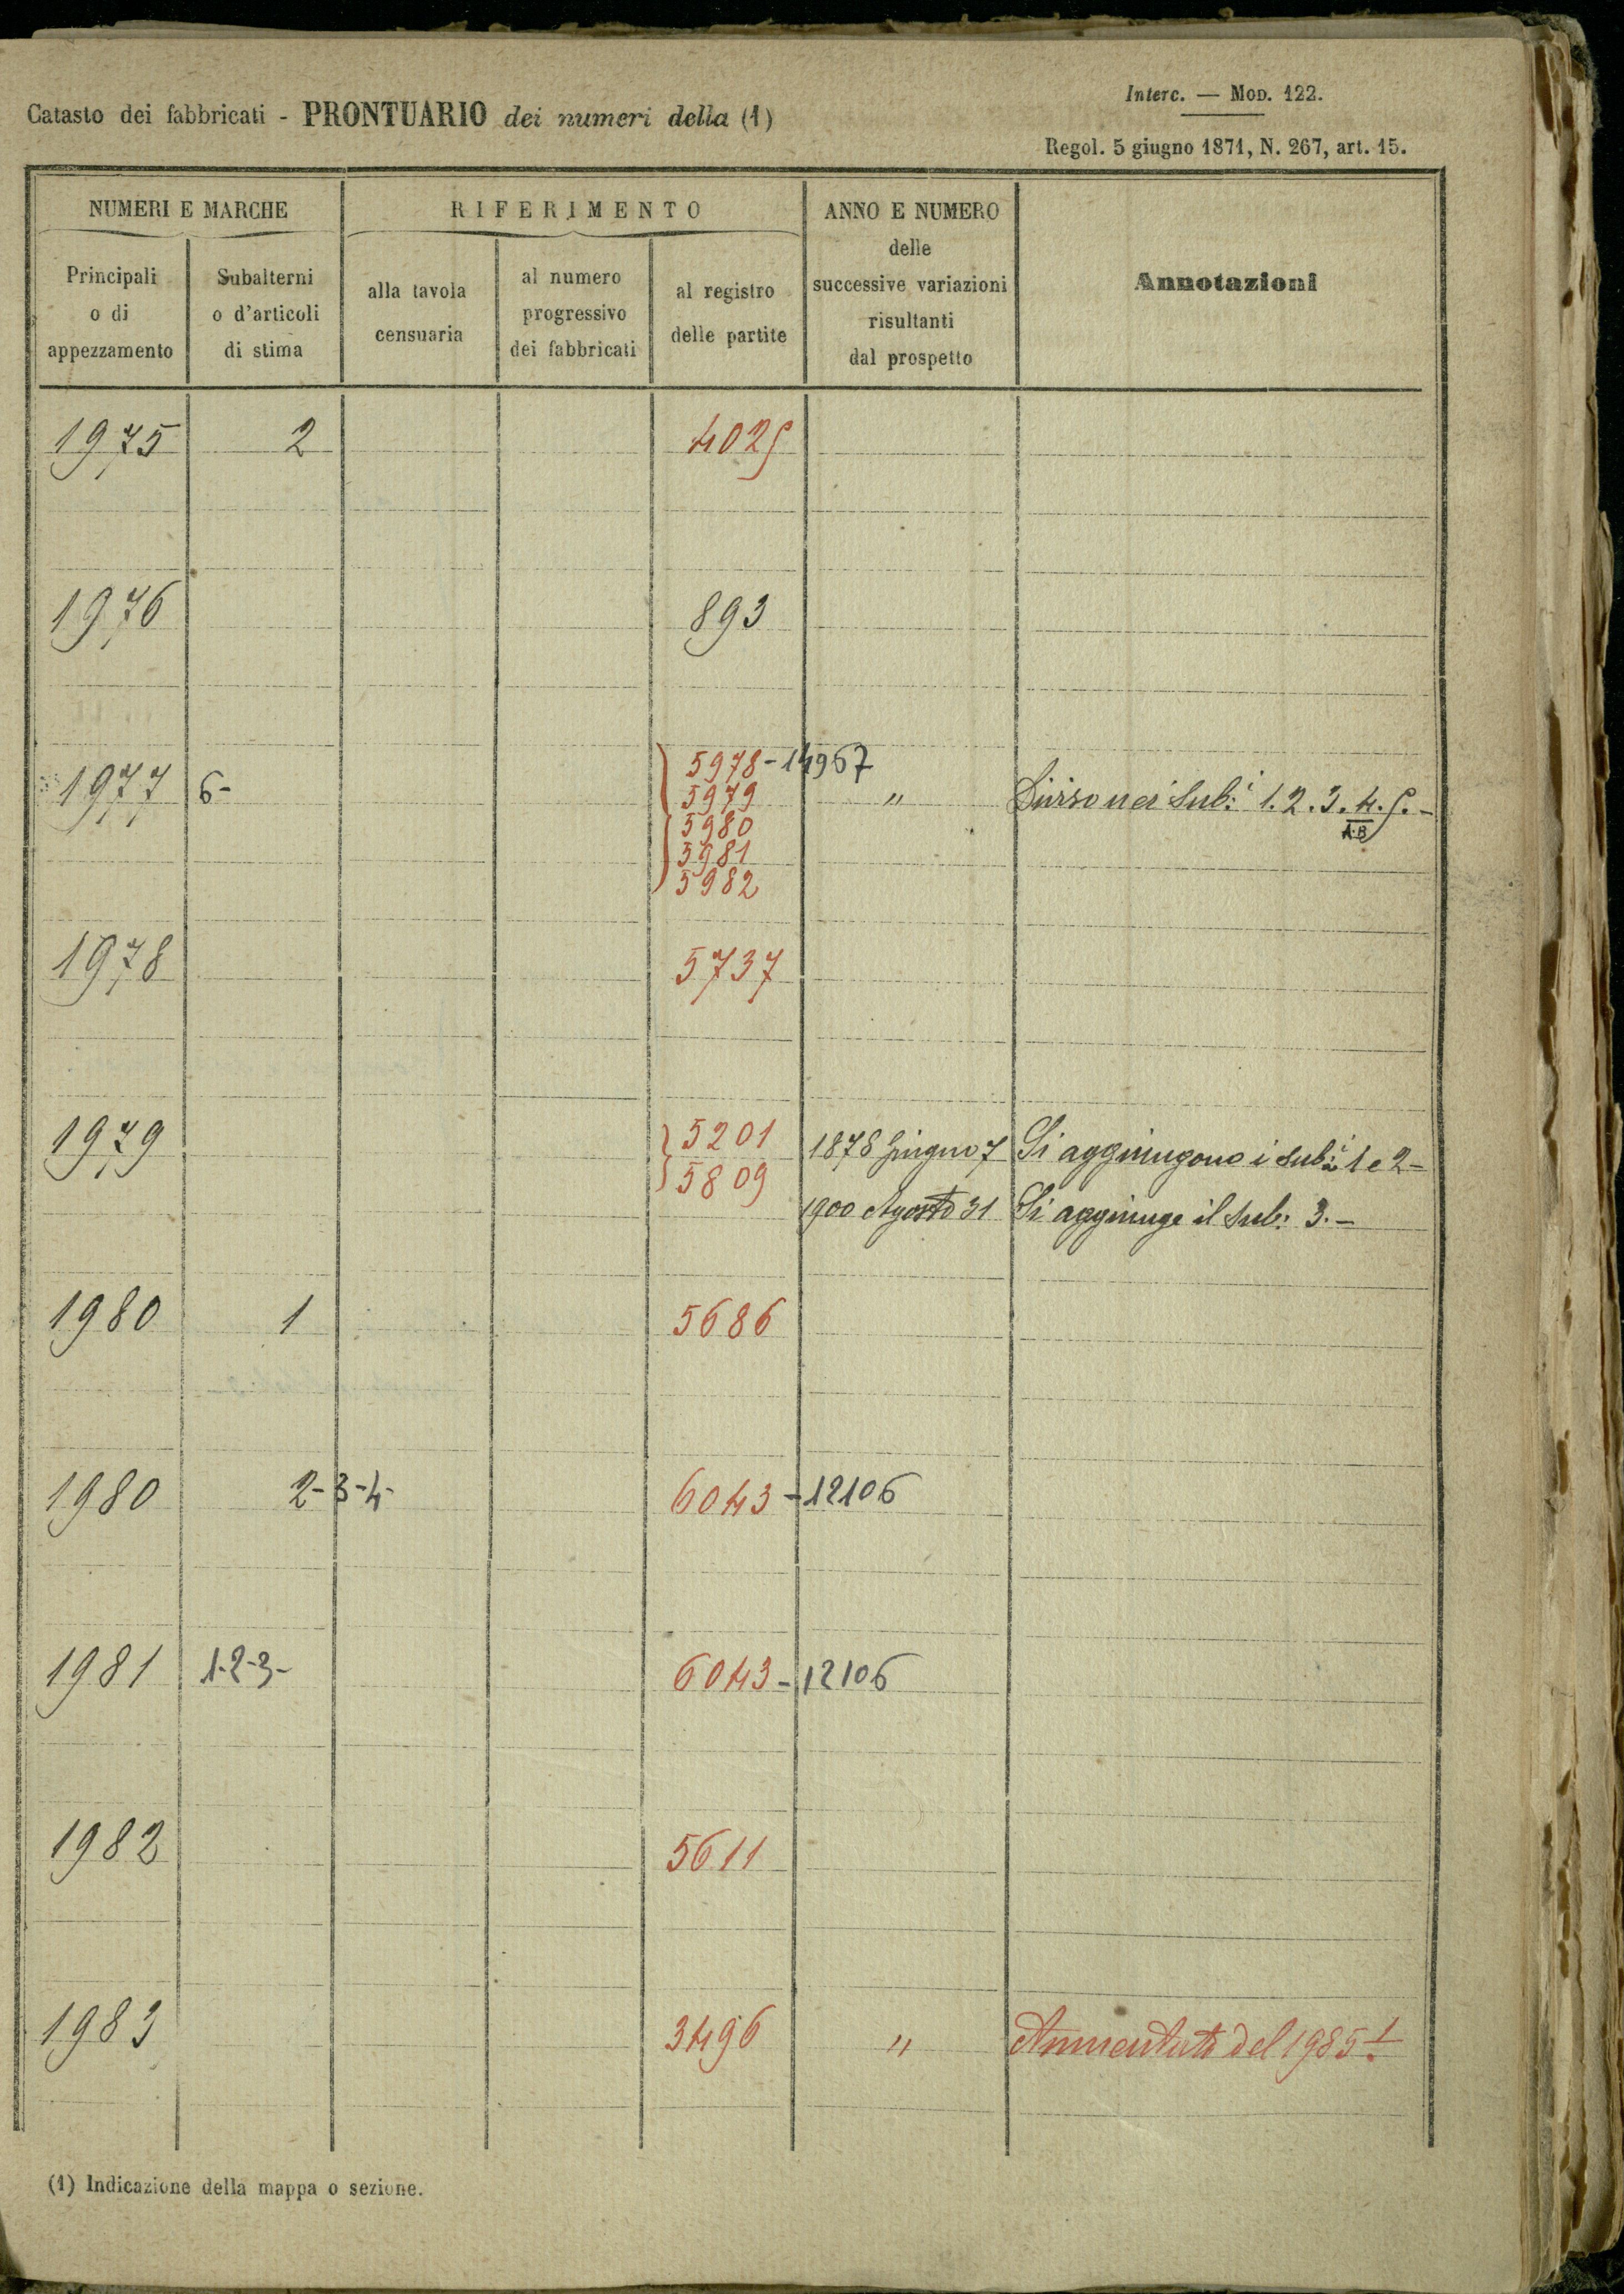 Interc. — Mod. 122.
Catasto dei fabbricati - PRONTUARIO dei numeri della (1)
Regol. 5 giugno 1871, N. 267, art. 15.
NUMERI E MARCHE RIFERIMENTO ANNO E NUMERO delle successive variazioni risultanti dal prospetto Annotazioni
Principali o di appezzamento Subalterni o d'articoli di stima alla tavola censuaria al numero progressivo dei fabbricati al registro delle partite
1975 2 4025
1976 893
5978-14967
1977 6- 5979 " Diviso nei Sub.i 1. 2. 3. 4. 5. -
5980 A.B
5981
5982
1978 5737
1979 5201 1878 Giugno 7 Si aggiungono i sub.i 1 e 2-
5809
1900 Agosto 31 Si aggiunge il Sub: 3. -
1980 1 5686
1980 2-3-4- 6043 -12106
1981 1-2-3- 6043 -12106
1982 5611
1983 3496 " Aumentato del 1985 1
(1) Indicazione della mappa o sezione.